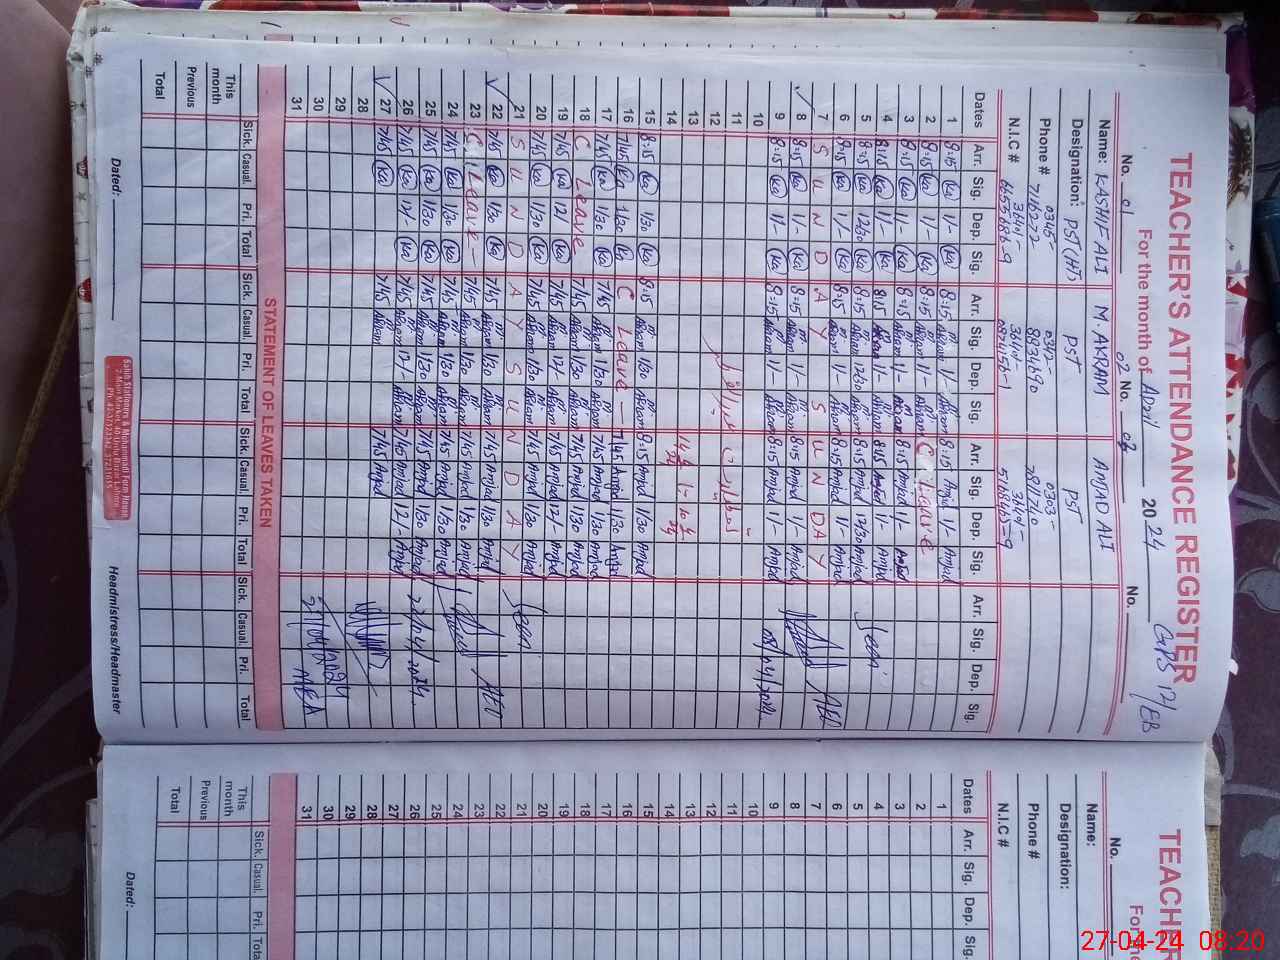 TEACHER'S ATTENDANCE REGISTER
GPS 12/EB
For the month of April 2024
No. 01 02 No. 03 No.
Name: KASHIF ALI M. AKRAM AMJAD ALI
Designation: PST(H) PST PST
Phone # 0345- 7716272 0342- 8834690 0303-
N.I.C # 36401- 36401- 36401-
Dates Arr. Sig. Dep. Sig. Arr. Sig. Dep. Sig. Arr. Sig. Dep. Sig. Arr. Sig. Dep. Sig.
1 8:15 Ka 1/- Ka 8:15 M Akram 1/- M Akram 8:15 Amjad 1/- Amjad
2 8:15 Ka 1/- Ka 8:15 M Akram 1/- M Akram C Leave
3 8:15 Ka 1/- Ka 8:15 M Akram 1/- M Akram 8:15 Amjad 1/- Amjad
4 8:15 Ka 1/- Ka 8:15 M Akram 1/- M Akram 8:15 Amjad 1/- Amjad
5 8:15 Ka 12/30 Ka 8:15 M Akram 12/30 M Akram 8:15 Amjad 12/30 Amjad
6 8:15 Ka 1/- Ka 8:15 M Akram 1/- M Akram 8:15 Amjad 1/- Amjad
7 SUNDAY SUNDAY AEO
8 8:15 Ka 1/- Ka 8:15 M Akram 1/- M Akram 8:15 Amjad 1/- Amjad
9 8:15 Ka 1/- Ka 8:15 M Akram 1/- M Akram 8:15 Amjad 1/- Amjad 08/04/2024
10
11
12
13
14
15 8:15 Ka 1/30 Ka 8:15 M Akram 1/30 M Akram 8:15 Amjad 1/30 Amjad
16 7/45 Ka 1/30 Ka C Leave 7/45 Amjad 1/30 Amjad
17 7/45 Ka 1/30 Ka 7/45 M Akram 1/30 M Akram 7/45 Amjad 1/30 Amjad
18 C Leave 7/45 M Akram 1/30 M Akram 7/45 Amjad 1/30 Amjad
19 7/45 Ka 12/ Ka 7/45 M Akram 12/- M Akram 7/45 Amjad 12/- Amjad
20 7/45 Ka 1/30 Ka 7/45 M Akram 1/30 M Akram 7/45 Amjad 1/30 Amjad
21 SUNDAY SUNDAY
22 7/45 Ka 1/30 Ka 7/45 M Akram 1/30 M Akram 7/45 Amjad 1/30 Amjad AEO
23 C Leave 7/45 M Akram 1/30 M Akram 7/45 Amjad 1/30 Amjad
24 7/45 Ka 1/30 Ka 7/45 M Akram 1/30 M Akram 7/45 Amjad 1/30 Amjad
25 7/45 Ka 1/30 Ka 7/45 M Akram 1/30 M Akram 7/45 Amjad 1/30 Amjad
26 7/45 Ka 12/- Ka 7/45 M Akram 12/- M Akram 7/45 Amjad 12/- Amjad 22/04/2024
27 7/45 Ka 7/45 M Akram 7/45 Amjad
28
29
30 27/04/2024
31 MEA
STATEMENT OF LEAVES TAKEN
Sick. Casual. Pri. Total Sick. Casual. Pri. Total Sick. Casual. Pri. Total Sick. Casual. Pri. Total
This month
Previous
Total
Dated: Headmistress/Headmaster
TEACHER
For the
No.
Name:
Designation:
Phone #
N.I.C #
Dates Arr. Sig. Dep. Sig.
1
2
3
4
5
6
7
8
9
10
11
12
13
14
15
16
17
18
19
20
21
22
23
24
25
26
27
28
29
30
31
Sick. Casual. Pri. Total
This month
Previous
Total
Dated:
27-04-24 08:20